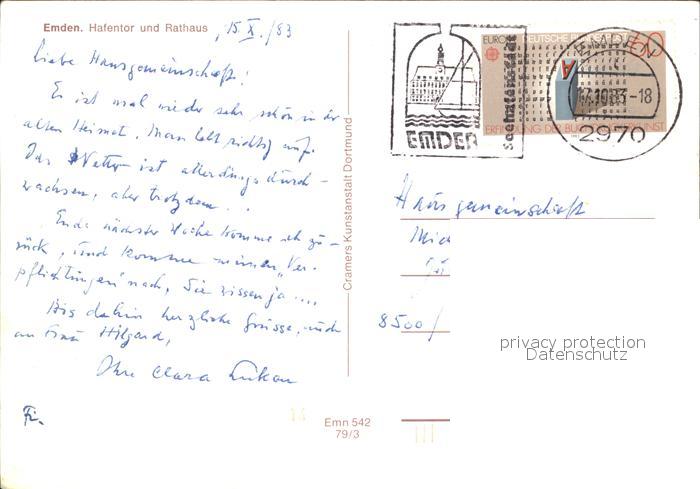 Emden. Hafentor und Rathaus
, 15. X. /83
liebe Hausgemeinschaft!
Es ist mal wieder sehr schön in der
alten Heimat. Man lebt richtig auf.
Das Wetter ist allerdings durch-
wachsen, aber trotzdem . .
Ende nächster Woche komme ich zu-
rück, und komme meinen „Ver-
pflichtungen" nach, Sie wissen ja ....
Bis dahin herzliche Grüsse, auch
an Frau Hilgard,
Ihre Clara
Fr.
Cramers Kunstanstalt Dortmund
Emn 542
79/3
EMDEN
Seehafenstadt
EUROPA DEUTSCHE BUNDESPOST
ERFINDUNG DES BUCHDRUCKKUNST
A
EMDEN
17.10.83-18
2970
Hausgemeinschaft
8500/
privacy protection
Datenschutz